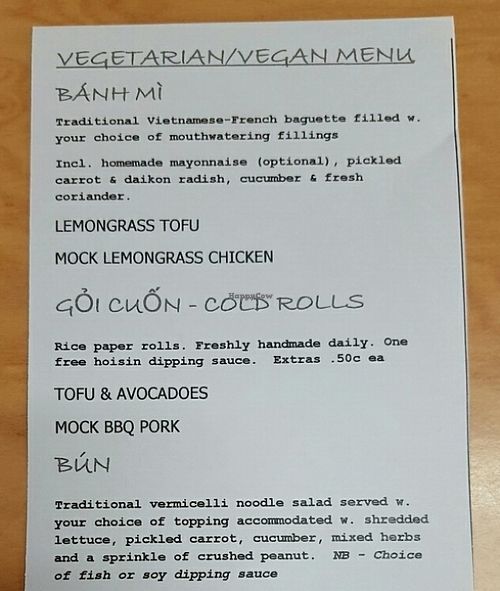 VEGETARIAN/VEGAN MENU
BÁNH MÌ
Traditional Vietnamese-French baguette filled w.
your choice of mouthwatering fillings
Incl. homemade mayonnaise (optional), pickled
carrot & daikon radish, cucumber & fresh
coriander.
LEMONGRASS TOFU
MOCK LEMONGRASS CHICKEN
GỎI CUỐN - COLD ROLLS
HappyCow
Rice paper rolls. Freshly handmade daily. One
free hoisin dipping sauce. Extras .50c ea
TOFU & AVOCADOES
MOCK BBQ PORK
BÚN
Traditional vermicelli noodle salad served w.
your choice of topping accommodated w. shredded
lettuce, pickled carrot, cucumber, mixed herbs
and a sprinkle of crushed peanut. NB - Choice
of fish or soy dipping sauce